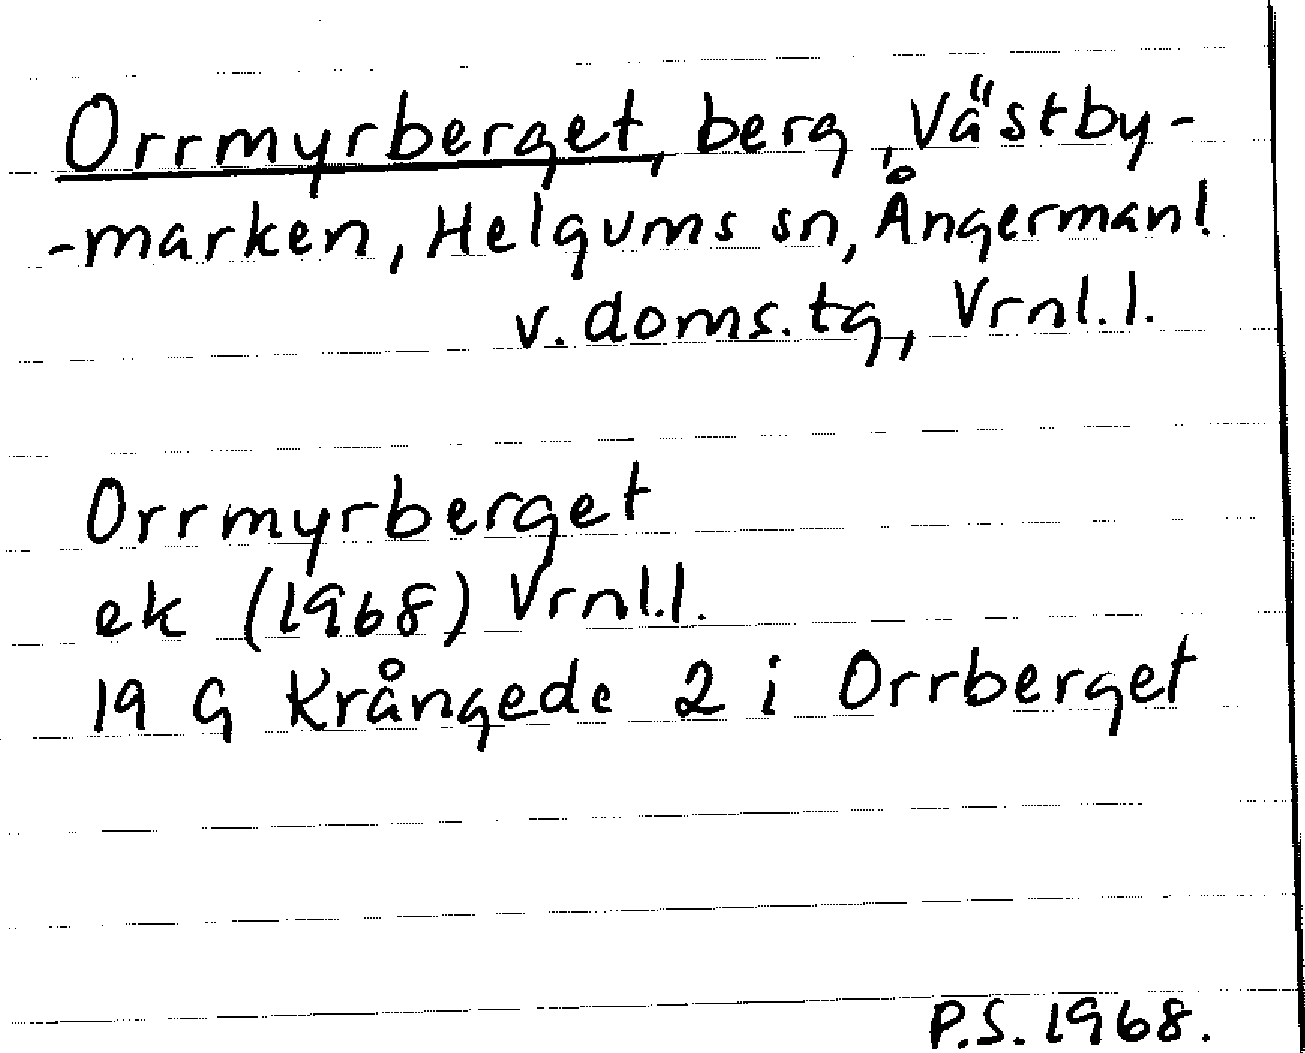 Orrmyrberget, berg, Västby-
-marken, Helgums sn, Ångermanl.
v. doms. tg, Vrnl. l.
Orrmyrberget
ek (1968) Vrnl. l.
19 G Krångede 2 i Orrberget
P.S. 1968.